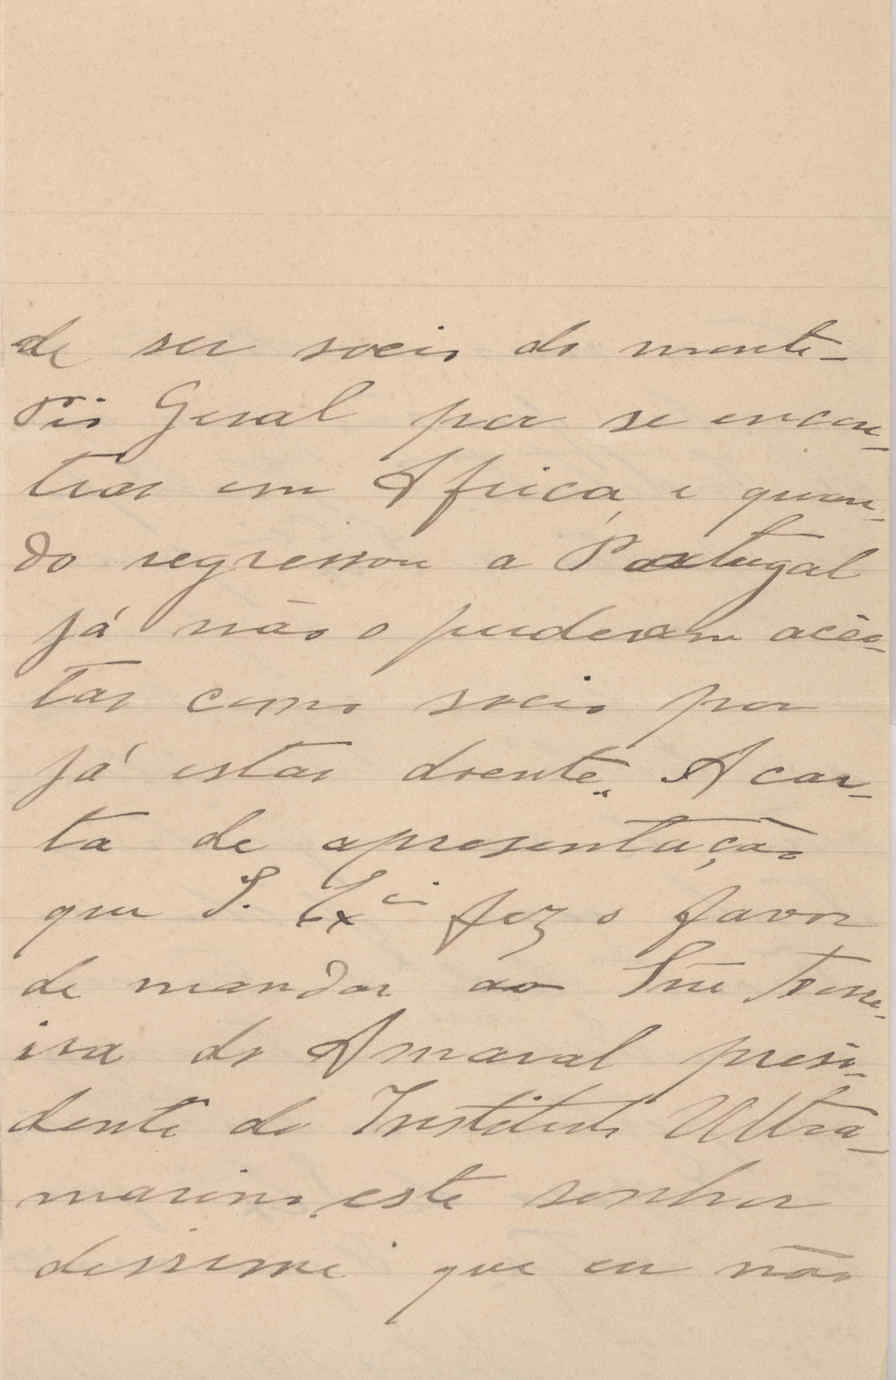 de ser socio do monte-
Pio Geral por se encon-
trar em Africa, e quan-
do regressou a Portugal
já não o puderam acei-
tar como socio por
já estar doente. A car-
ta de apresentação
que S. Exci fez o favor
de mandar ao Snr
ira do Amaral presi-
dente do Instituto Ultra-
marino, este senhor
disseme que eu não